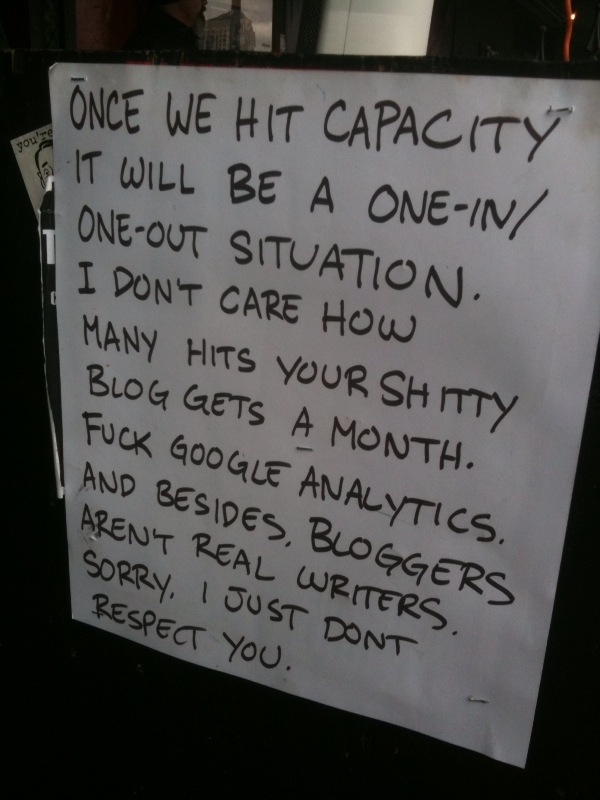 you're
T
ONCE WE HIT CAPACITY
IT WILL BE A ONE-IN/
ONE-OUT SITUATION.
I DON'T CARE HOW
MANY HITS YOUR SHITTY
BLOG GETS A MONTH.
FUCK GOOGLE ANALYTICS.
AND BESIDES, BLOGGERS
AREN'T REAL WRITERS.
SORRY. I JUST DONT
RESPECT YOU.